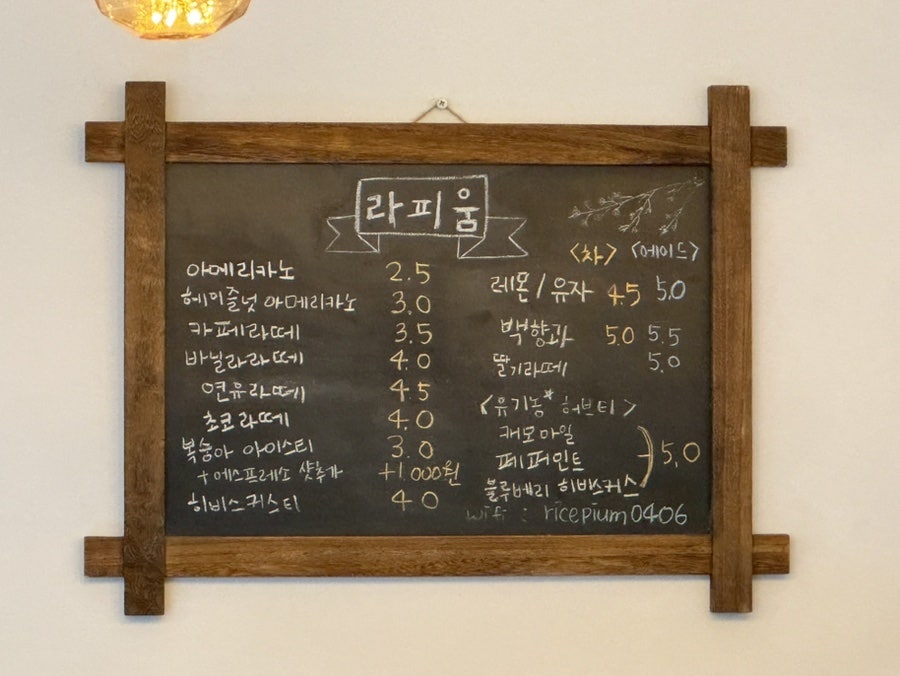 라피움
아메리카노 2.5
헤이즐넛 아메리카노 3.0
카페라떼 3.5
바닐라라떼 4.0
연유라떼 4.5
초코라떼 4.0
복숭아 아이스티 3.0
+ 에스프레소 샷추가 +1.000원
히비스커스티 4.0
<차> <에이드>
레몬/유자 4.5 5.0
백향과 5.0 5.5
딸기라떼 5.0
<유기농* 허브티>
캐모마일
페퍼민트 5.0
블루베리 히비스커스
wifi : ricepium0406